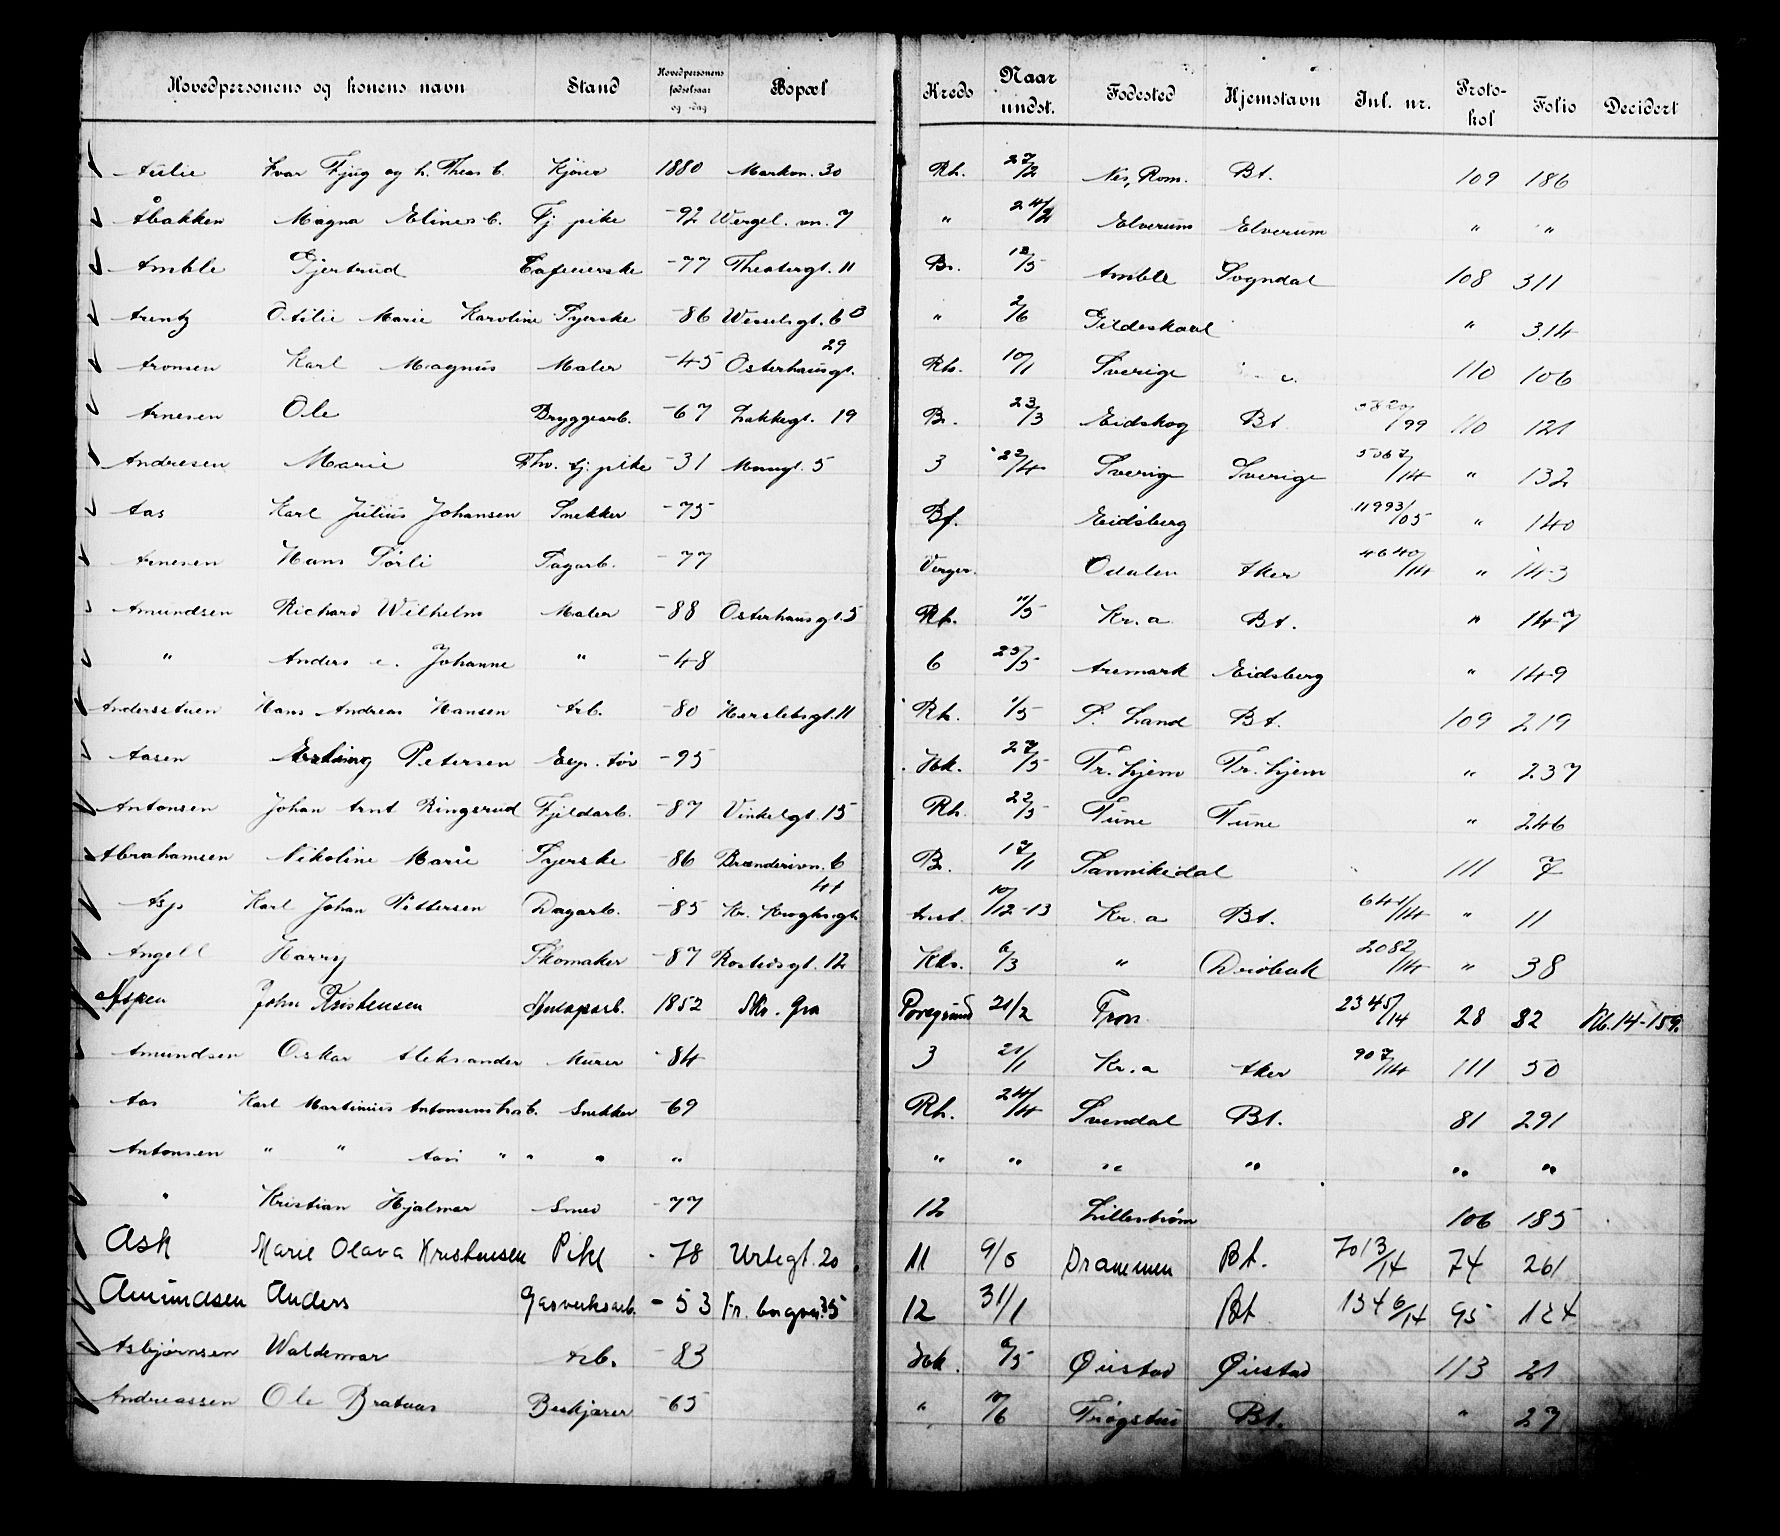 Hovedpersonens og konens navn Stand Hovedpersonens fødselsaar og -dag Bopæl Kreds Naar undst. Fødested Hjemstavn Jnl. nr. Protokol Folio Decidert
Aulie Ivar Kjører 1880 Markvn. 30 Rh. 27/2 Nes, Rom. Bt. 109 186
Åbakken Magna Elines b. Tj pike -92 Wergel. vn. 7 " 24/2 Elverum Elverum " "
Amble Gjertrud -77 Theatergt. 11 Br. 12/5 Amble Sogndal 108 311
Arentz Otilie Marie Karoline Syerske -86 Wesselsgt. 6 " 2/6 Gildeskaal " 314
Aronsen Karl Magnus Maler -45 Osterhausgt. 29 Rh. 10/1 Sverige 110 106
Arnesen Ole Bryggearb. -67 Lakkegt. 19 B. 23/3 Eidskog Bt 110 121
Andresen Marie Fhv. tj. pike -31 5 3 22/4 Sverige Sverige 5067/14 " 132
Aas Karl Julius Johansen Snekker -75 Bf. Eidsberg 11993/05 " 140
Arnesen Hans Dagarb. -77 Odalen Aker 4640/14 " 143
Amundsen Richard Wilhelm Maler -88 Osterhausgt. 5 Rh. 11/5 Kr.a Bt. " 147
" Anders e. Johanne " -48 6 25/5 Aremark Eidsberg " 149
Andersstuen Hans Andreas Hansen Arb. -80 Herslebsgt. 11 Rh. 1/5 S. Land Bt. 109 219
Aasen Erling Petersen -95 Hk. 27/5 Tr. hjem Tr. hjem " 237
Antonsen Johan Arnt Ringsrud Fjeldarb. -87 Vinkelgt. 15 Rh. 22/5 Tune Tune " 246
Abrahamsen Nikoline Marie Syerske -86 Brænderivn. 6 B. 17/1 Sannikedal 111 7
Asp Karl Johan Pettersen Dagarb. -85 Kr. Kroghsgt. 41 Anst. 10/12-13 Kr.a Bt. 641/14 " 11
Angell Harry Skomaker -87 Rostedsgt. 12 Kls. 6/3 " Drøbak 2082/14 " 38
Aspen John Kristensen 1852 Porsgrund 21/2 Fron 2345/14 28 82
Amundsen Oskar Aleksander Murer -84 3 21/1 Kr.a Aker 907/14 111 50
Aas Karl Martinius Snekker -69 Rh. 24/4 Svendal Bt. 81 291
Antonsen " " " " " " " " " " " "
" Kristian Hjalmar Smed -77 12 Lillestrøm 106 185
Ask Marie Olava Kristensen Pike - 78 Urtegt. 20 11 9/6 Drammen Bt. 7013/14 74 261
Amundsen Anders Gasverksarb. - 53 35 12 31/1 Bt 1346/14 95 124
Asbjørnsen Waldemar Arb. -83 Hk. 6/5 Øiestad Øiestad 113 21
Andreassen Ole Brataas Beskjærer -65 " 10/6 Trøgstad Bt. " 27